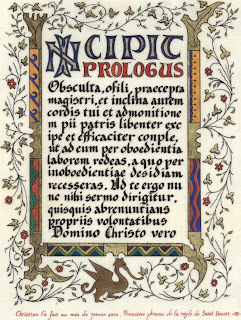 INCIPIT
PROLOGUS
Obsculta, o fili, praecepta
magistri, et inclina aurem
cordis tui et admonitione
m pii patris libenter exc
ipe et efficaciter comple,
ut ad eum per oboedientia
laborem redeas, a quo per
inoboedientiae desidiam
recesseras. Ad te ergo nu
nc mihi sermo dirigitur,
quisquis abrenuntians
propriis voluntatibus
Domino Christo vero
Christian l'a fait au mois de janvier 2002. Premières phrases de la règle de Saint Benoit